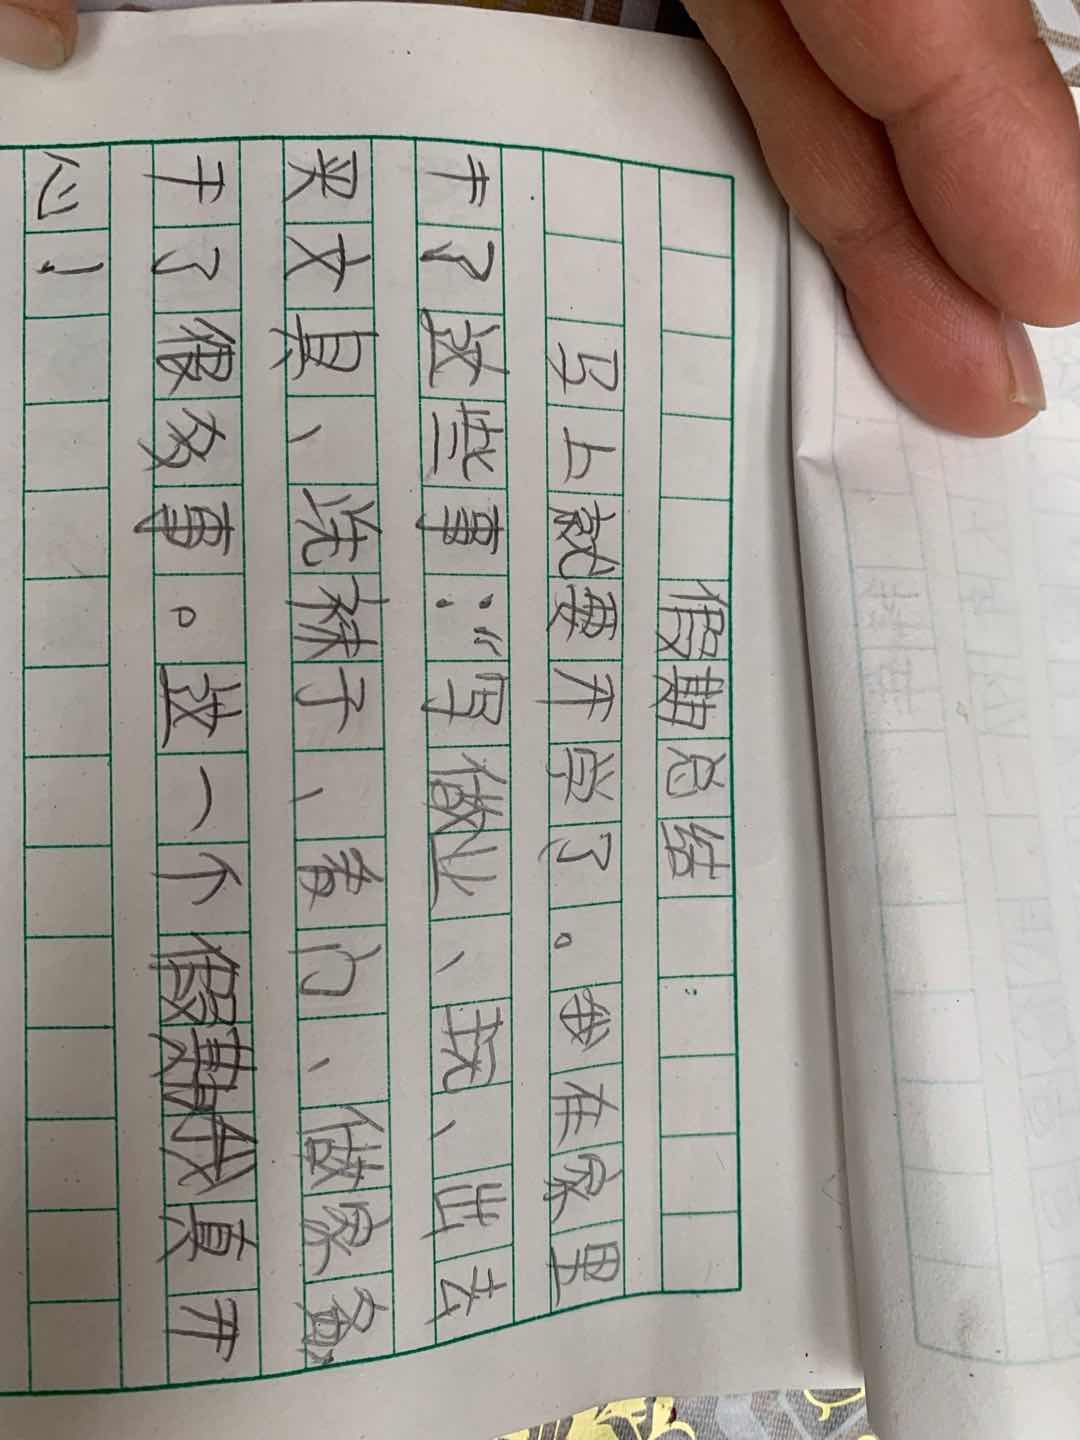 假期总结
马上就要开学了。我在家里
干了这些事：“写做业、玩、出去
买文具、洗袜子、看门、做家务
干了很多事。这一个假期我真开
心！